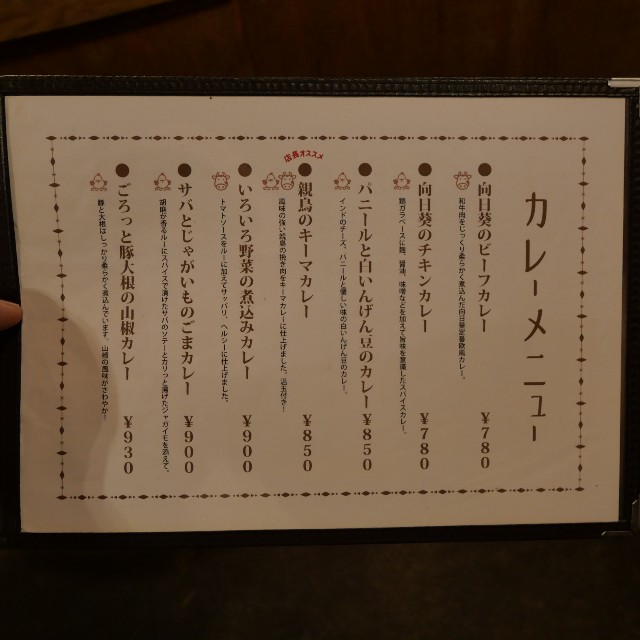 カレーメニュー
●向日葵のビーフカレー ¥780
和牛肉をじっくり柔らかく煮込んだ向日葵定番欧風カレー。
●向日葵のチキンカレー ¥780
鶏ガラベースに麹、醤油、味噌などを加えて旨味を意識したスパイスカレー。
●パニールと白いんげん豆のカレー ¥850
インドのチーズ、パニールと優しい味の白いんげん豆のカレー。
店長オススメ
●親鳥のキーマカレー ¥850
風味の強い親鳥の挽き肉をキーマカレーに仕上げました。温玉付き！
●いろいろ野菜の煮込みカレー ¥900
トマトソースをルーに加えてサッパリ、ヘルシーに仕上げました。
●サバとじゃがいものごまカレー ¥900
胡麻が香るルーにスパイスで漬けたサバのソテーとカリっと揚げたジャガイモを添えて。
●ごろっと豚大根の山椒カレー ¥930
豚と大根はしっかり柔らかく煮込んでいます。山椒の風味がさわやか！